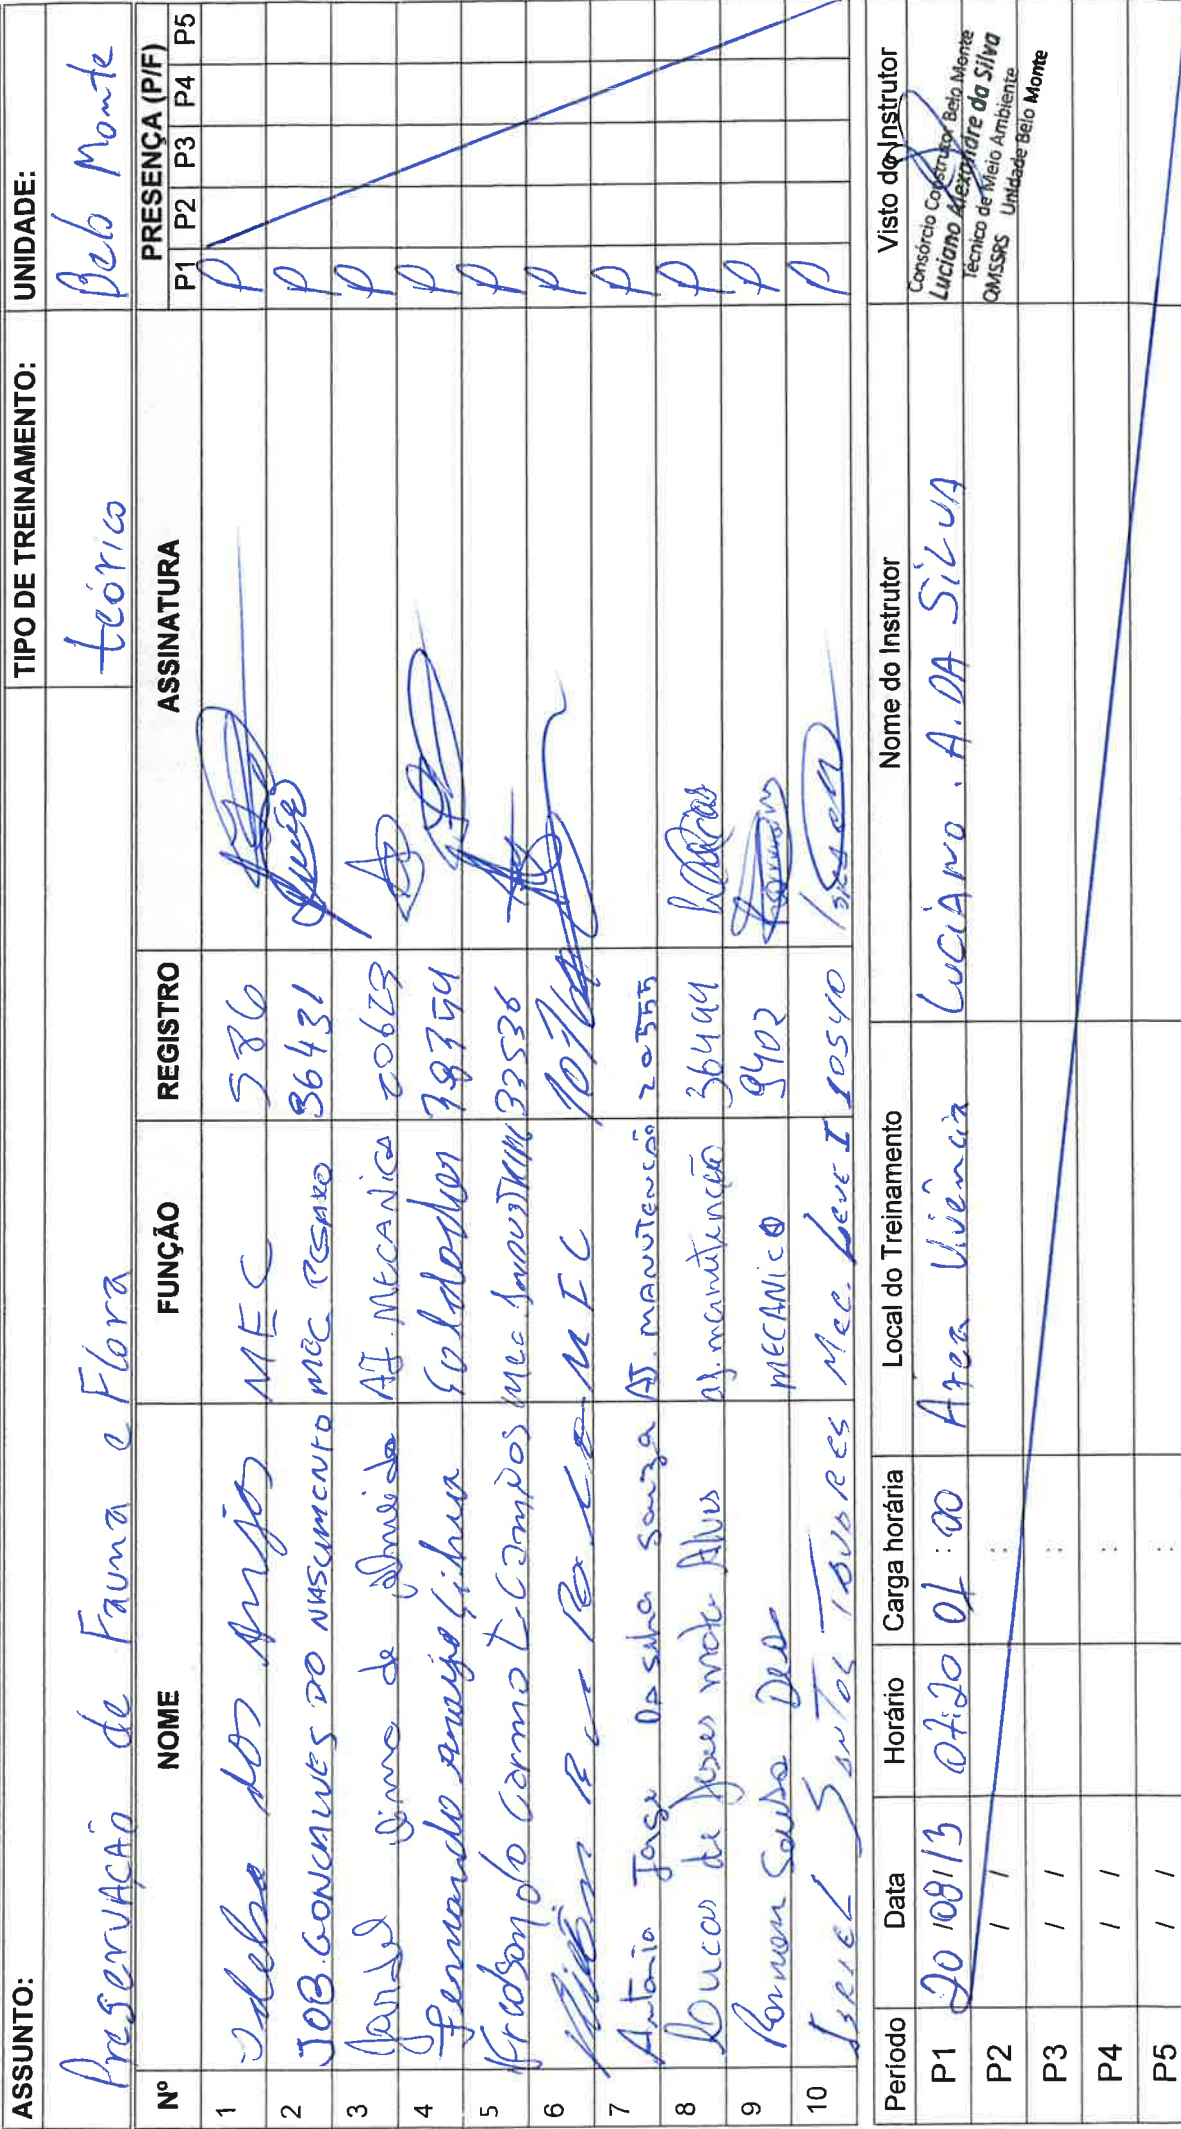 ASSUNTO: TIPO DE TREINAMENTO: UNIDADE:
Preservação de Fauna e Flora teórico Belo Monte
Nº NOME FUNÇÃO REGISTRO ASSINATURA PRESENÇA (P/F)
P1 P2 P3 P4 P5
1 dos Anjos MEC 586 P
2 JOB GONCALVES DO NASCIMENTO MEC PESADO 36431 P
3 Lima de Almeida AJ. MECANICA 20623 P
4 Fernando Araújo Soldador 38354 P
5 do Carmo Mec. 33536 P
6 P
7 Antonio Jorge Da Silva Souza AJ. MANUTENCÃO 20555 P
8 Lucas de Jesus mota Alves aj. manutenção 36499 P
9 Sousa MECANICO 9402 P
10 ISRIEL SANTOS TAVARES Mec. LEVE I 10540 P
Período Data Horário Carga horária Local do Treinamento Nome do Instrutor Visto do Instrutor
P1 20/08/13 07:20 01:00 Area Vivência LUCIANO. A. DA SILVA
Consórcio Construtor Belo Monte
Luciano Alexandre da Silva
Técnico de Meio Ambiente
QMSSRS Unidade Belo Monte
P2 / / :
P3 / / :
P4 / / :
P5 / / :